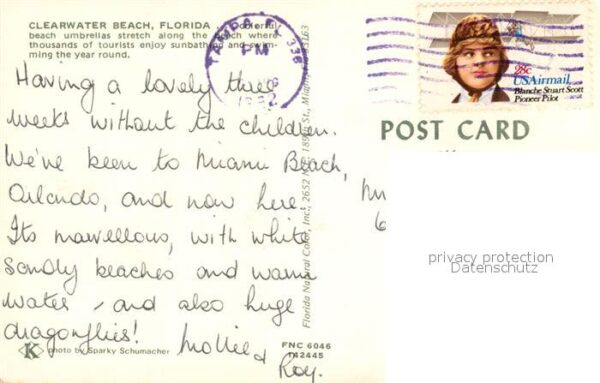 CLEARWATER BEACH, FLORIDA
beach umbrellas stretch along the beach where
thousands of tourists enjoy sunbathing and swim-
ming the year round.
TAMPA, FL 336
PM
1982
28c
USAirmail
Blanche Stuart Scott
Pioneer Pilot
POST CARD
Having a lovely three
weeks without the children.
We've been to Miami Beach,
Orlando, and now here.
Its marvellous, with white
sandy beaches and warm
water, and also huge
dragonflies!
Mollie &
Roy.
K
photo by Sparky Schumacher
FNC 6046
142445
Florida Natural Color, Inc., 2652 N.E. 189th St., Miami, 33163
privacy protection
Datenschutz